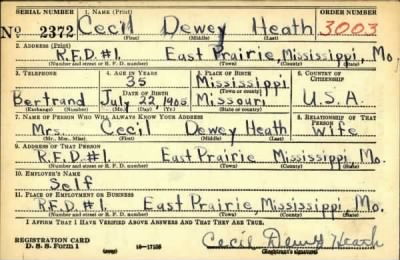 SERIAL NUMBER 1. NAME (Print) ORDER NUMBER
No 2372 Cecil Dewey Heath 3003
(First) (Middle) (Last)
2. ADDRESS (Print)
R.F.D. #1. East Prairie, Mississippi, Mo
(Number and street or R. F. D. number) (Town) (County) (State)
3. TELEPHONE 4. AGE IN YEARS 5. PLACE OF BIRTH 6. COUNTRY OF CITIZENSHIP
35 Mississippi
Bertrand July 22, 1905 Missouri U.S.A.
(Exchange) (Number) (Mo.) (Day) (Yr.) (State or country)
7. NAME OF PERSON WHO WILL ALWAYS KNOW YOUR ADDRESS 8. RELATIONSHIP OF THAT PERSON
Mrs. Cecil Dewey Heath Wife
(Mr., Mrs., Miss) (First) (Middle) (Last)
9. ADDRESS OF THAT PERSON
R.F.D. #1. East Prairie Mississippi, Mo.
(Number and street or R. F. D. number) (Town) (County) (State)
10. EMPLOYER'S NAME
Self
11. PLACE OF EMPLOYMENT OR BUSINESS
R.F.D. #1. East Prairie, Mississippi, Mo.
(Number and street or R. F. D. number) (Town) (County) (State)
I AFFIRM THAT I HAVE VERIFIED ABOVE ANSWERS AND THAT THEY ARE TRUE.
REGISTRATION CARD
D. S. S. Form 1 16-17105 Cecil Dewey Heath
(Registrant's signature)